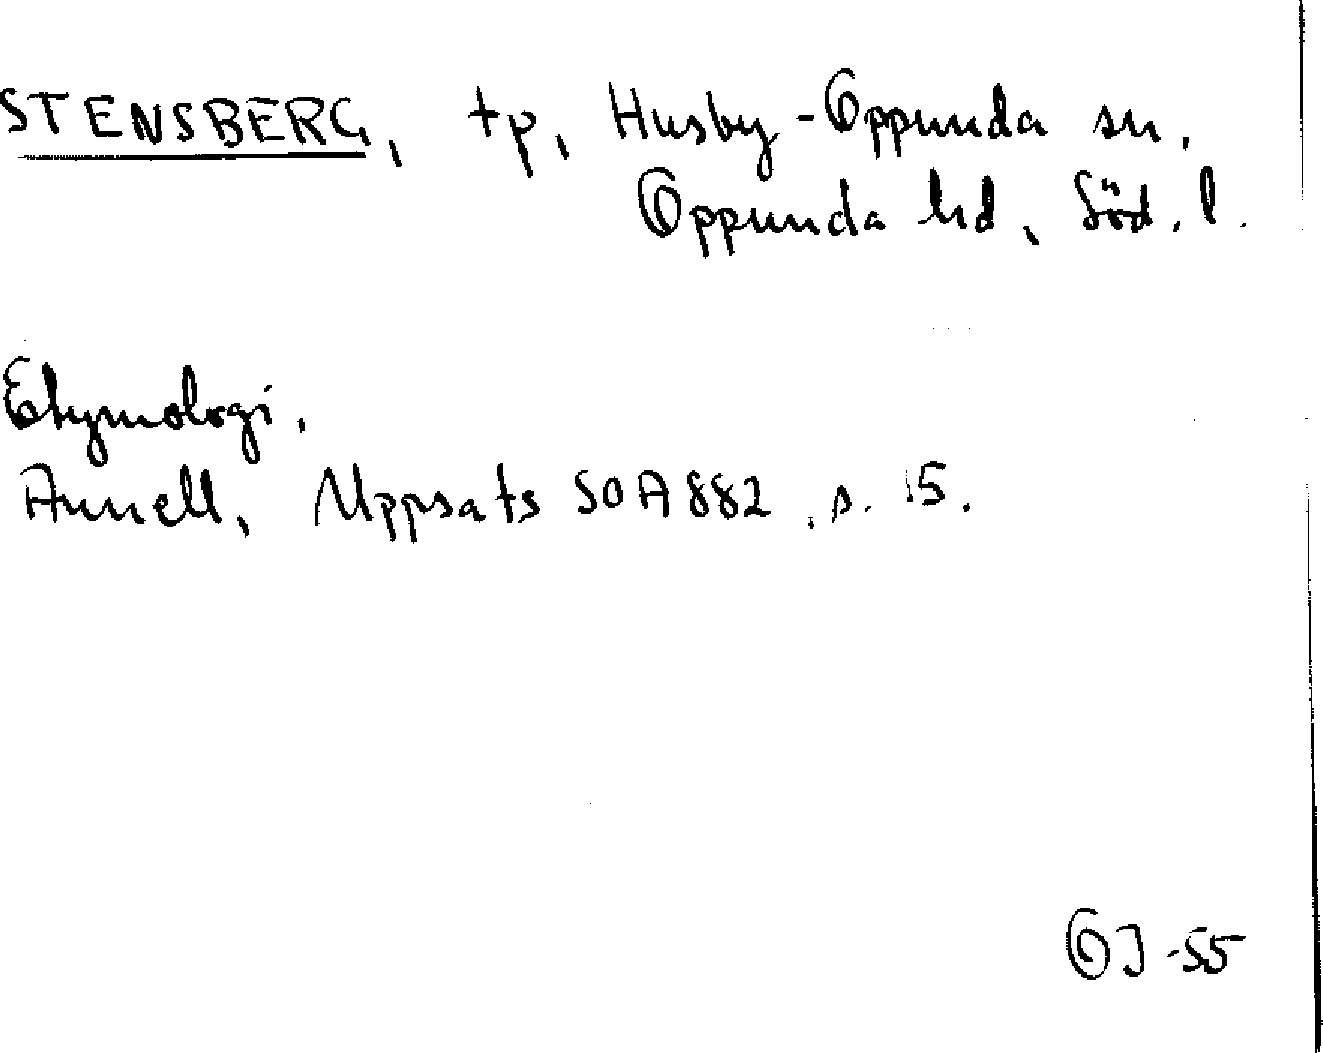 STENSBERG, tp, Husby-Oppunda sn,
Oppunda hd, Söd. l.
Etymologi,
Annell, Uppsats SOA 882, s. 15.
OJ -55